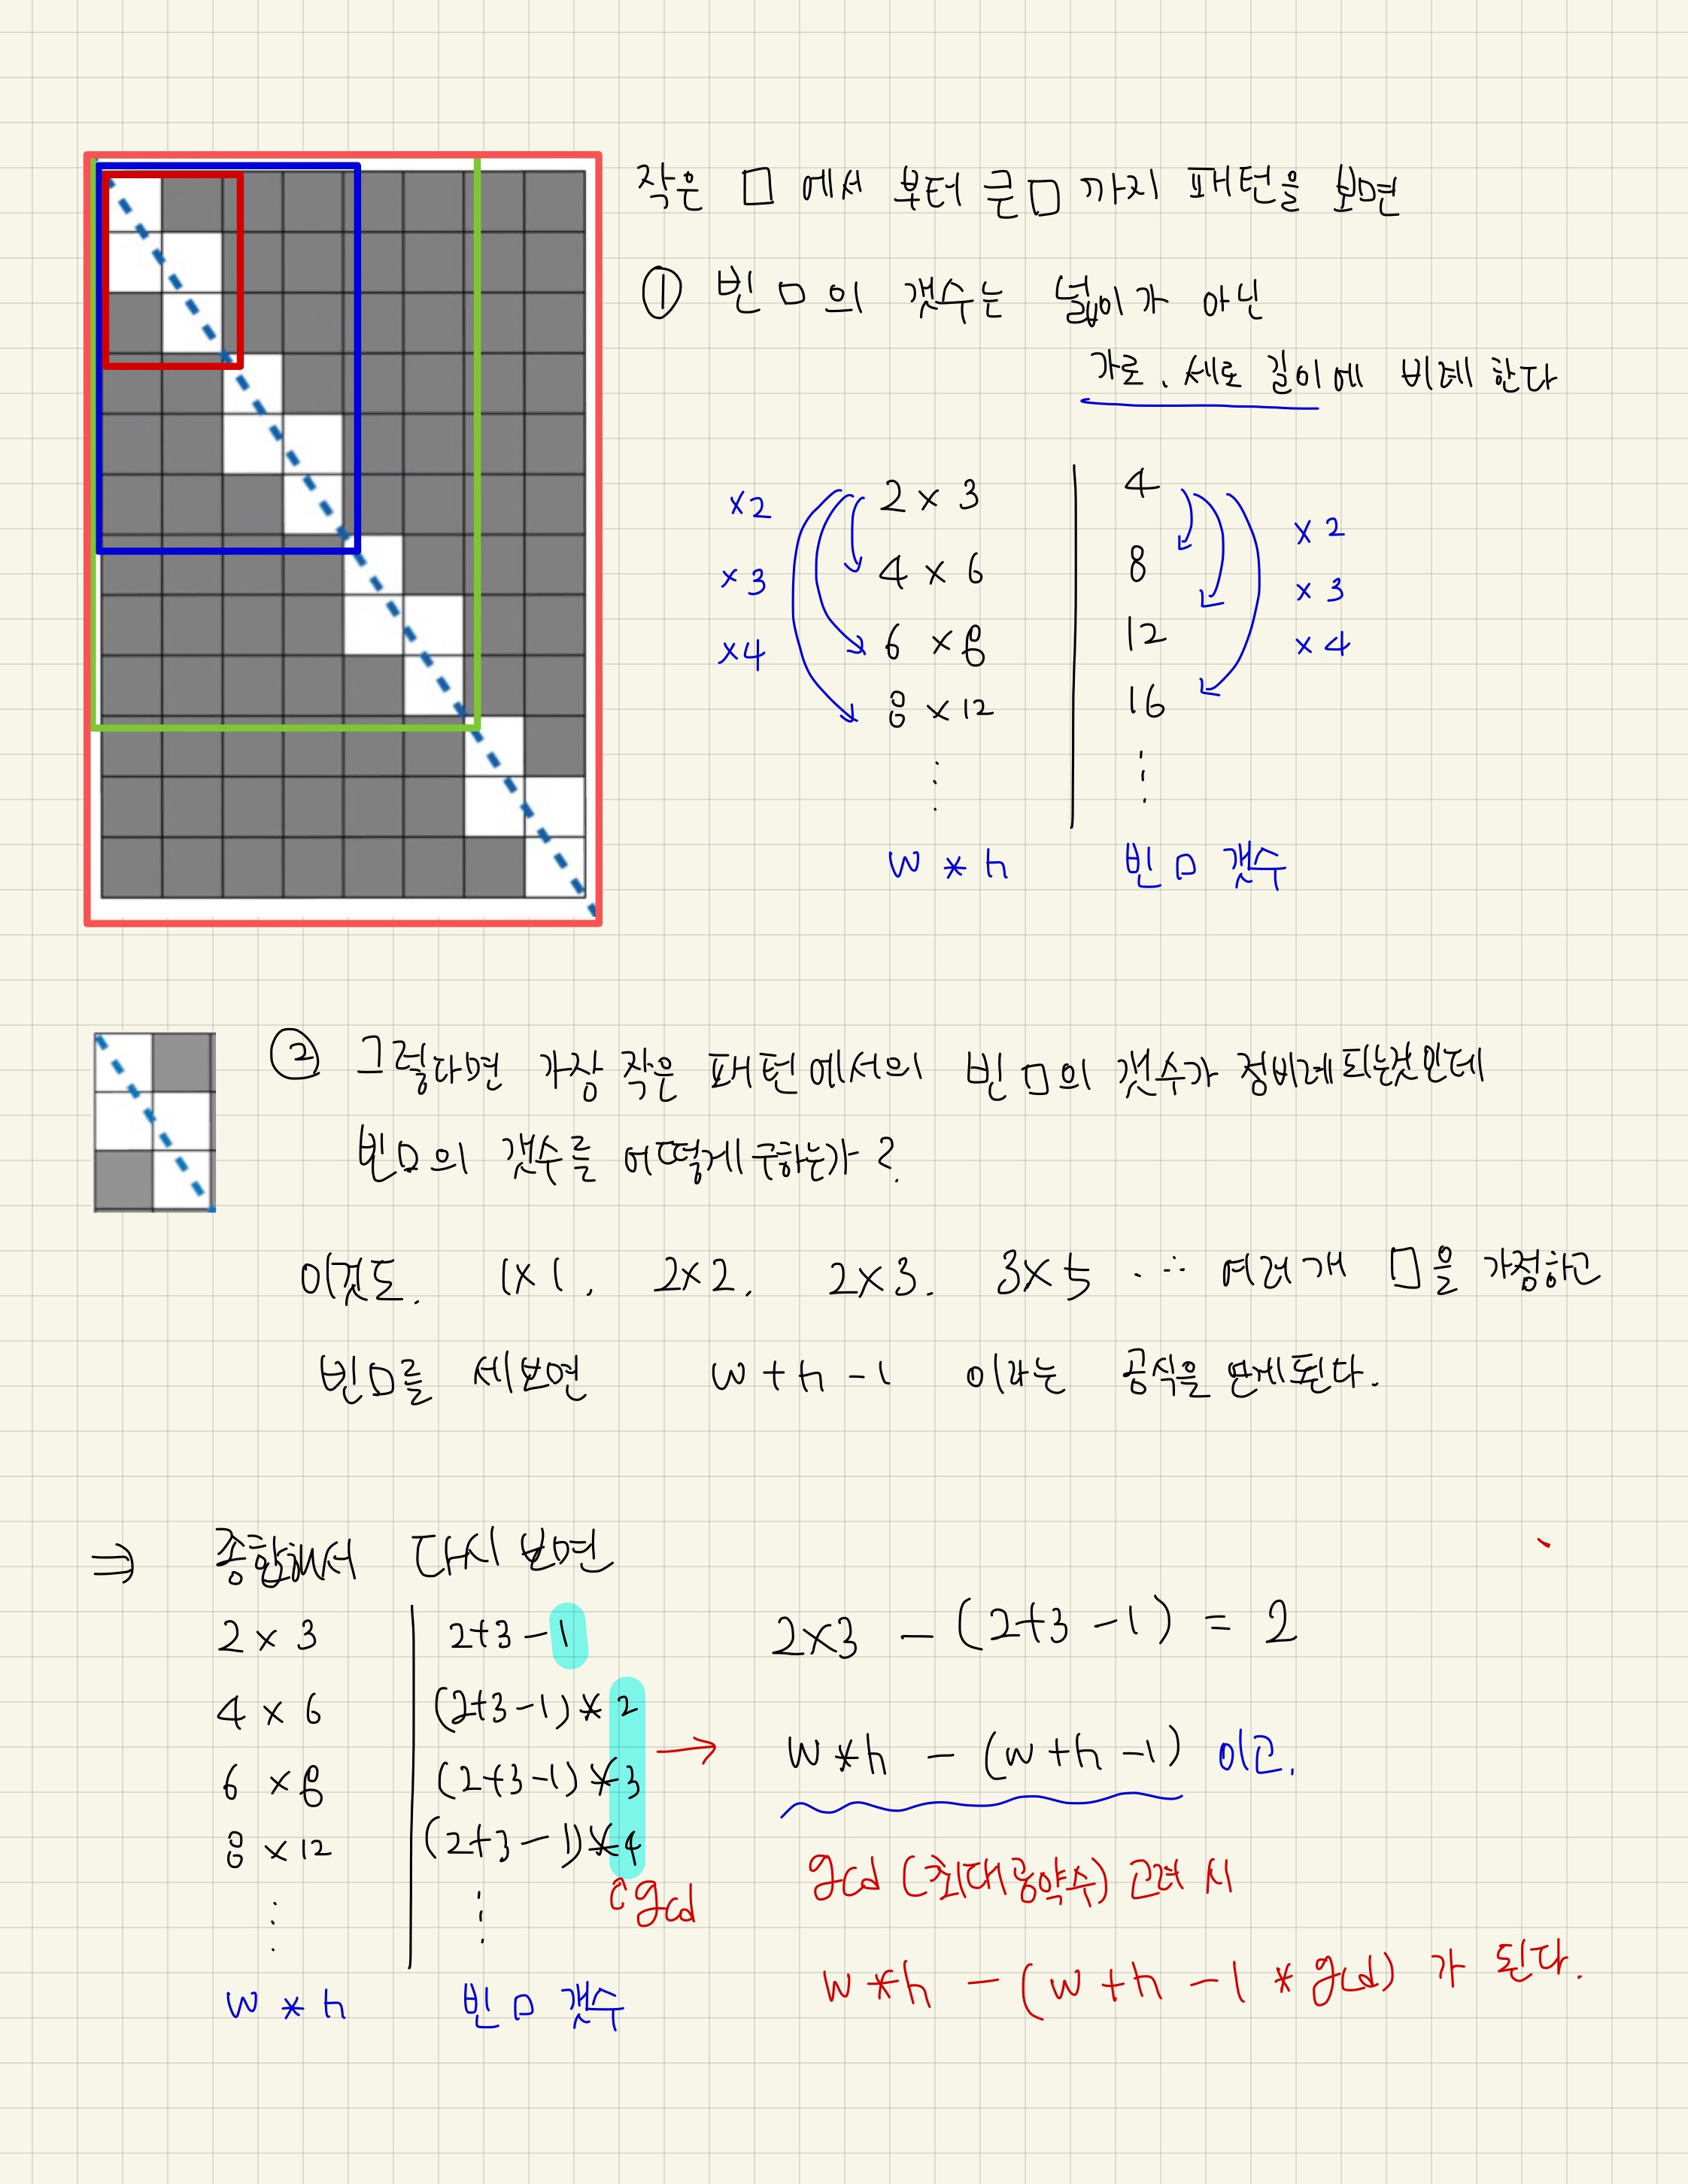 작은 □ 에서 부터 큰 □ 까지 패턴을 보면
① 빈 □의 갯수는 넓이가 아닌
가로, 세로 길이에 비례한다
×2 2 × 3 4 ×2
×3 4 × 6 8 ×3
×4 6 × 8 12 ×4
8 × 12 16
⋮ ⋮
w * h 빈 □ 갯수
② 그렇다면 가장 작은 패턴에서의 빈 □의 갯수가 정비례되는것인데
빈 □의 갯수를 어떻게 구하는가?
이것도. 1×1, 2×2, 2×3, 3×5 ... 여러개 □을 가정하고
빈 □를 세보면 w + h - 1 이라는 공식을 얻게된다.
⇒ 종합해서 다시 보면
2 × 3 2+3-1 2×3 - (2+3-1) = 2
4 × 6 (2+3-1) * 2
6 × 8 (2+3-1) * 3 → w*h - (w+h-1) 이고,
8 × 12 (2+3-1) * 4
⋮ ⋮ gcd gcd (최대공약수) 고려 시
w * h 빈 □ 갯수 w*h - (w+h-1 * gcd) 가 된다.